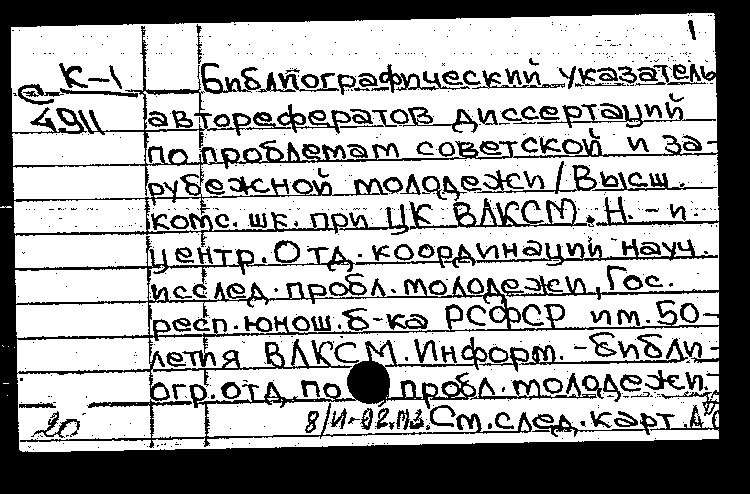 1
К-1 Библиографический указатель
е 4911 авторефератов диссертаций
по проблемам советской и за-
рубежной молодежи / Высш.
комс. шк. при ЦК ВЛКСМ. Н.-и.
центр. Отд. координации науч.
исслед. пробл. молодежи, Гос.
респ. юнош. б-ка РСФСР им. 50-
летия ВЛКСМ. Информ.-библи-
огр. отд. по пробл. молодежи.-
20 См. след. карт.